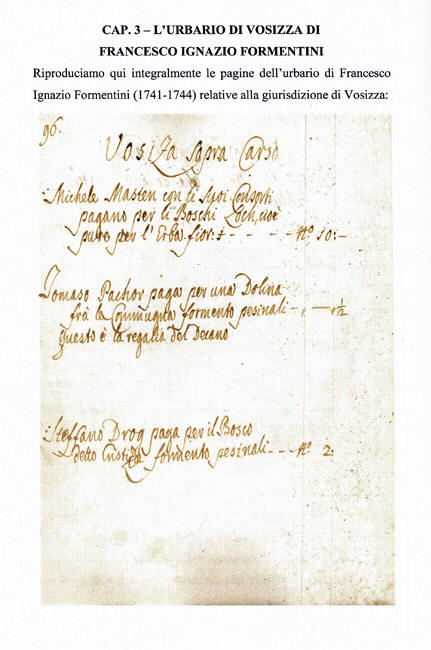 CAP. 3 – L’URBARIO DI VOSIZZA DI
FRANCESCO IGNAZIO FORMENTINI
Riproduciamo qui integralmente le pagine dell’urbario di Francesco
Ignazio Formentini (1741-1744) relative alla giurisdizione di Vosizza:
96.
Vosiza sopra Carso
Michele Masten con li suoi Consorti
pagano per li Boschi cioè
pure per l'Erba fior: - - - - N.º 10:-
Tomaso Pachor paga per una Dolina
frà la Commugna formento pesinali - - 1/2
Questo è la regalia del Decano
Steffano Drog paga per il Bosco
detto formento pesinali - - - N.º 2: